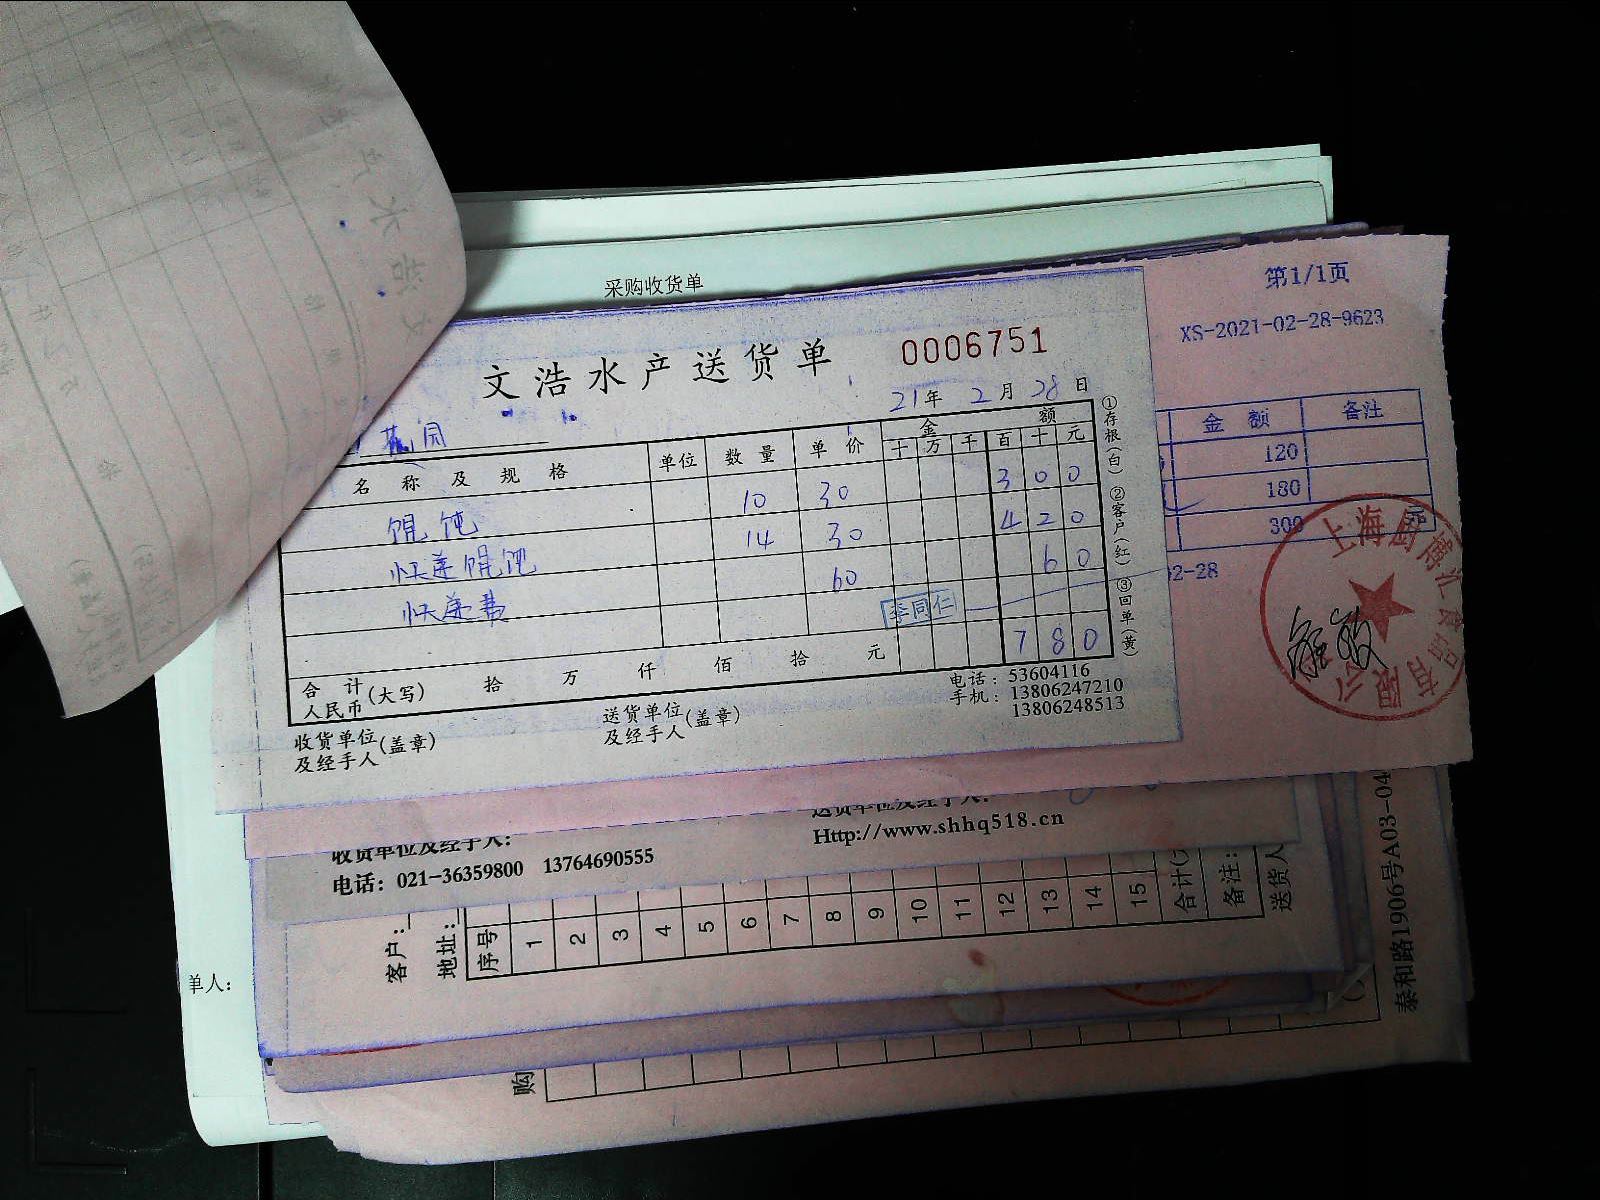 采购收货单
第1/1页
XS-2021-02-28-9623
文浩水产送货单 0006751
21年2月28日
花园
名称及规格 单位 数量 单价 金额 十万千百十元
馄饨 10 30 300
快递馄饨 14 30 420
快递费 60 60
李同仁
780
合计人民币(大写) 拾 万 仟 佰 拾 元
电话：53604116
手机：13806247210
13806248513
收货单位及经手人(盖章) 送货单位及经手人(盖章)
①存根(白) ②客户(红) ③回单(黄)
金额 备注
120
180
300
02-28
收货单位及经手人：
送货单位及经手人：
电话：021-36359800 13764690555
Http://www.shhq518.cn
客户：
地址：
序号 1 2 3 4 5 6 7 8 9 10 11 12 13 14 15 合计
备注：
送货人
单人：
购
泰和路1906号A03-04